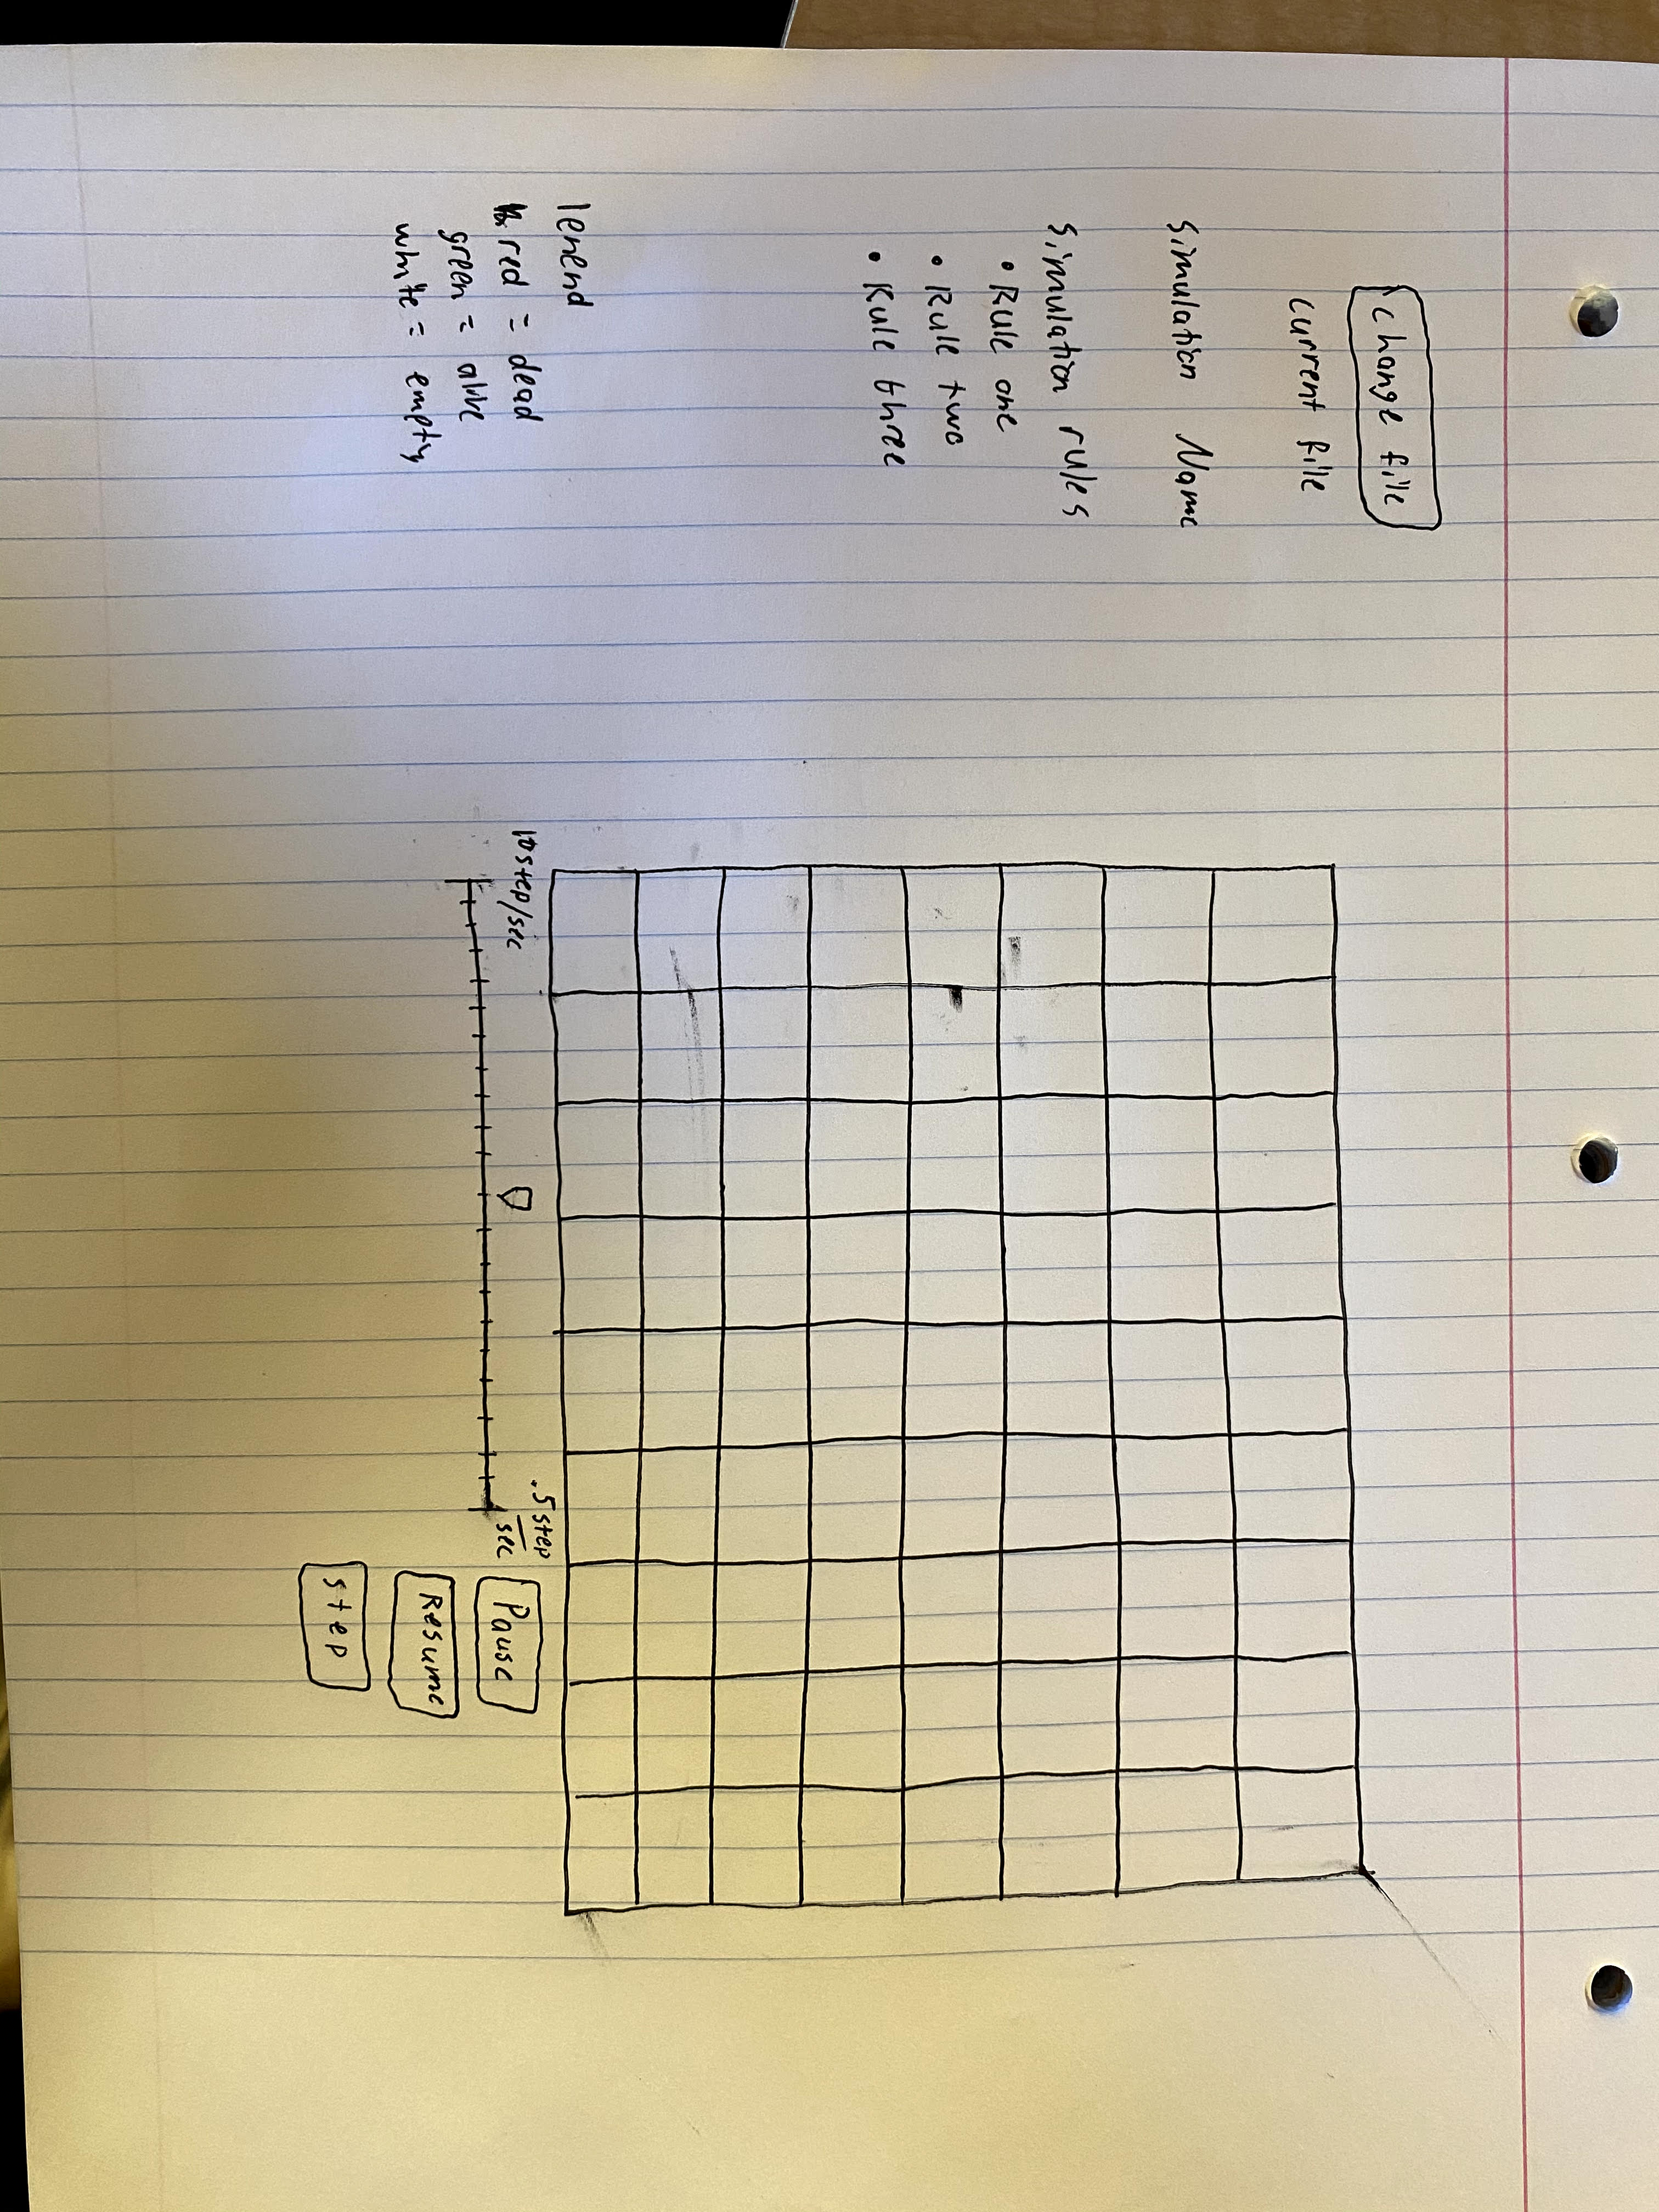 change file
current file
Simulation Name
Simulation rules
• Rule one
• Rule two
• Rule three
lenend
red = dead
green = alive
white = empty
10step/sec
.5 step
sec
Pause
Resume
step